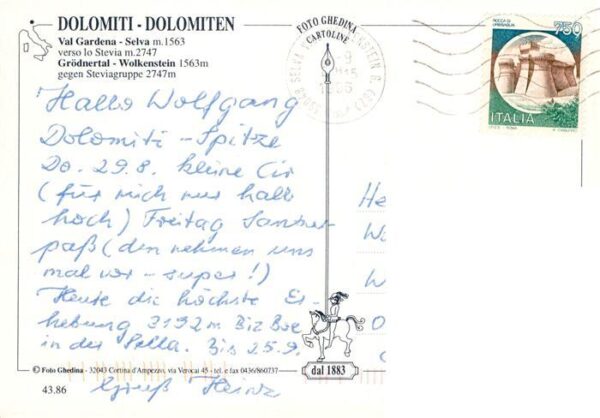 DOLOMITI - DOLOMITEN
Val Gardena - Selva m.1563
verso lo Stevia m.2747
Grödnertal - Wolkenstein 1563m
gegen Steviagruppe 2747m
FOTO GHEDINA
CARTOLINE
ROCCA DI
URBISAGLIA
750
ITALIA
Hallo Wolfgang
Dolomiti - Spitze
Do. 29.8. kleine Cir
(für mich nur halb
hoch) Freitag
paß (den nehmen uns
mal vor - super!)
Heute die höchste Er-
hebung 3152m Piz Boe
in der Sella. Bis 25.9.
Gruß Heinz
He
W
W
O
D
dal 1883
© Foto Ghedina - 32043 Cortina d'Ampezzo, via Verocai 45 - tel. e fax 0436/860737
43.86